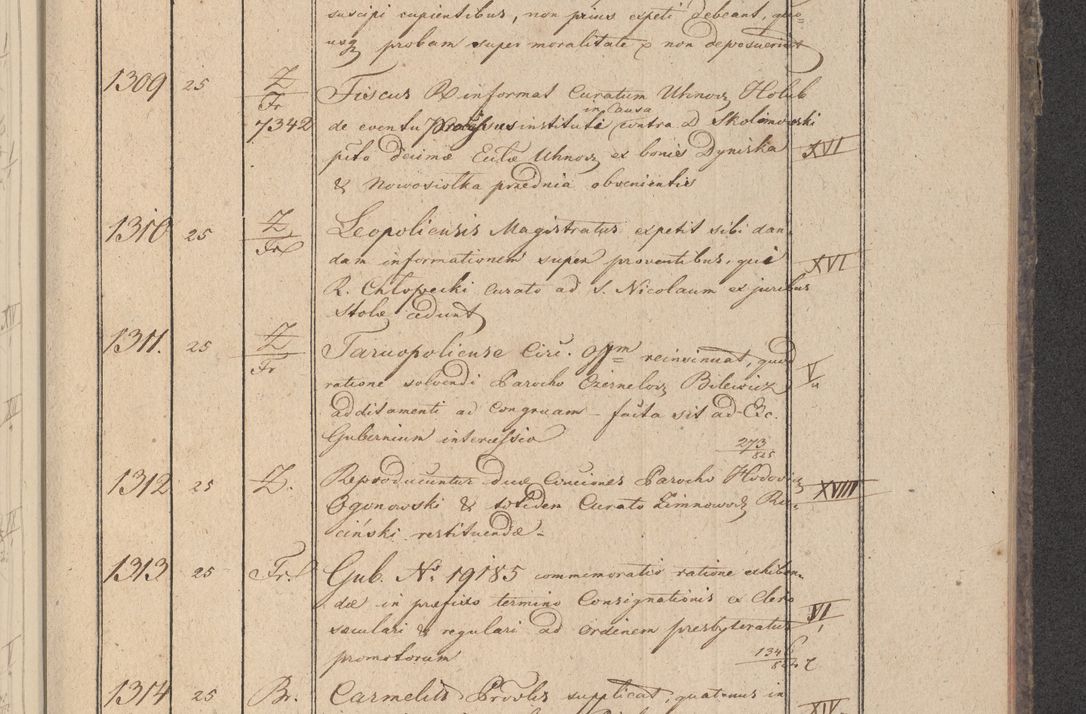 suscipi cupientibus, non prius expeti debeant, quo=
usq probam super moralitate & non deposuerint
1309 25 Z/Fr 7342 Fiscus R informat Curatum Uhnov Holub
in Causa
de eventu Processus instituti contra D Skolimowski
pcto decimæ Eccl̃æ Uhnov ex bonis Dyniska XVI
& Nowosiołka przednia obvenientis
1310 25 Z/Fr Leopoliensis Magistratus expetit sibi dan=
dam informationem super proventibus, qui XVI
R. Chłopecki Curato ad S. Nicolaum ex juribus
Stolæ cedunt
1311. 25 Z/Fr Tarnopoliense Circ. Offm reinsinuat, quod
ratione solvendi Parocho Czernelov Bilewicz V
additamenti ad Congruam facta sit ad Exc.
Gubernium intercessio 273/825
1312 25 Z. Reproducuntur duæ Cruciones Parocho Hodovic
Ogonowski & totidem Curato Zimnowod Ru= XVIII
ciński restituendæ
1313 25 Fr. Gub. No 19185 commemoratio ratione exhiben=
dæ in præfixo termino Consignationis ex Clero
sæculari & regulari ad ordinem presbyteratus VI
promotorum
1314 25 Br. Carmelit Provlis supplicat, quatenus in
XIV